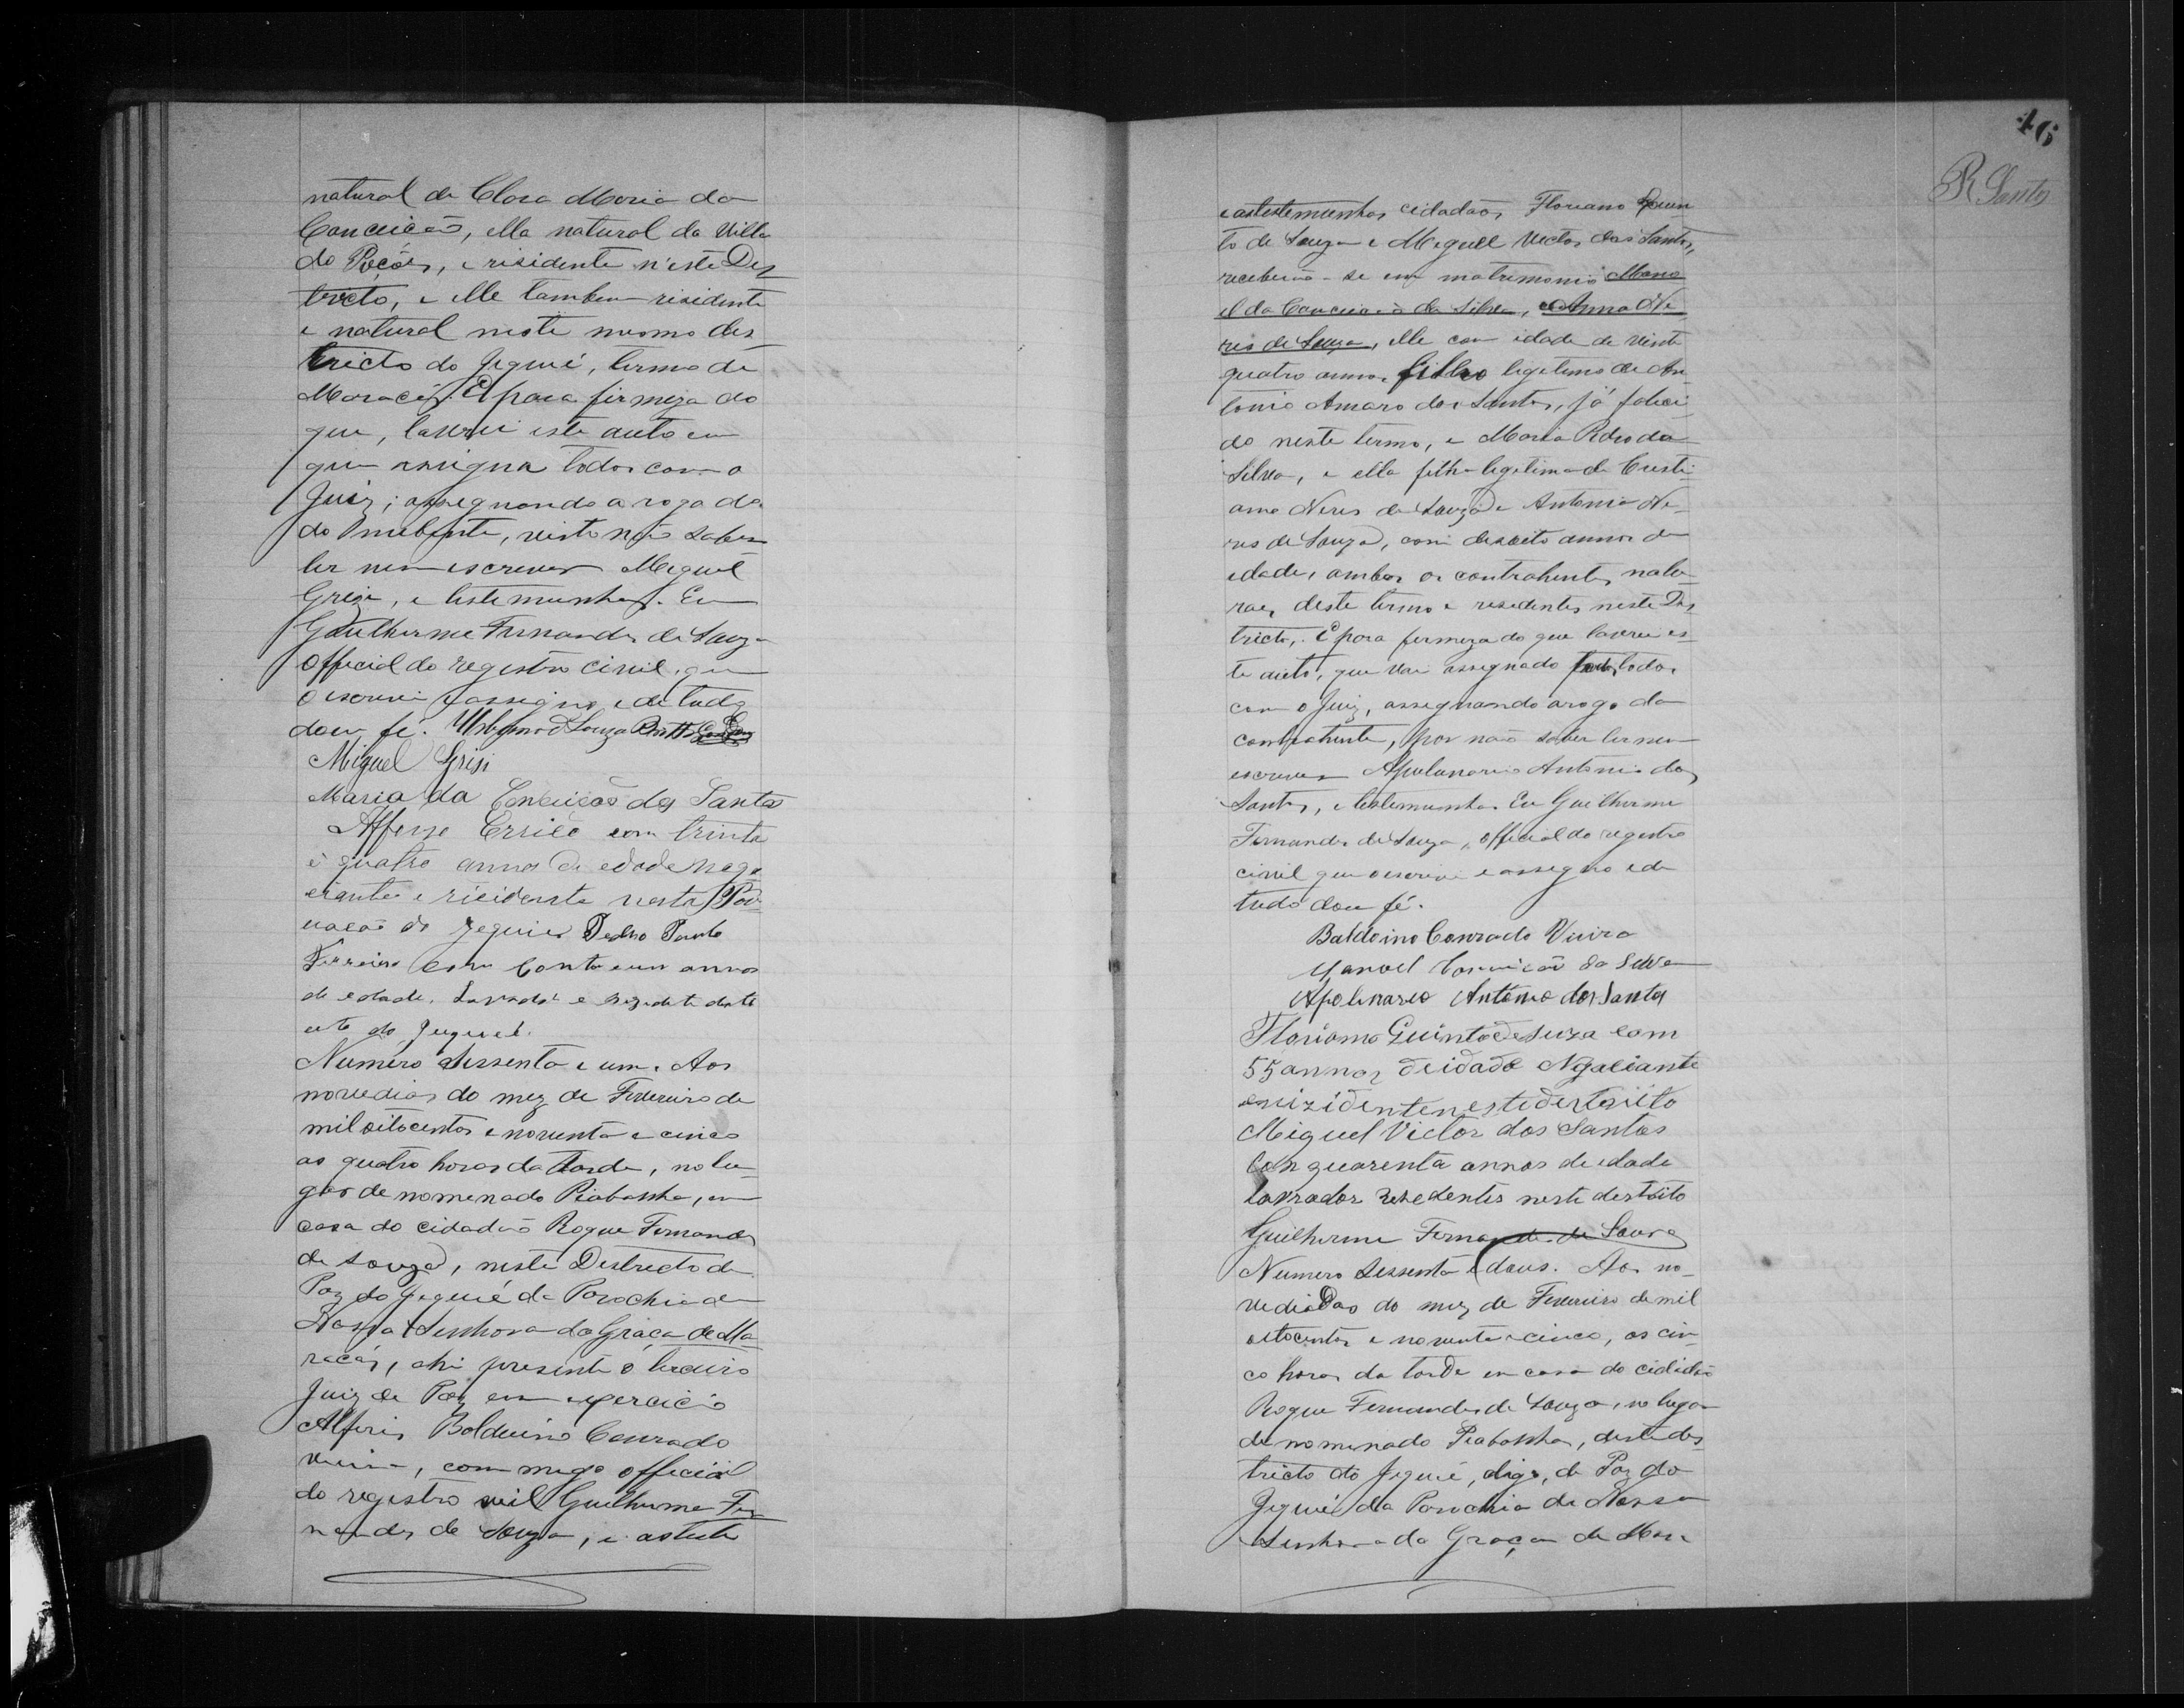 natural de Clara Maria da
Conceição, ella natural da Villa
do Poções, e risidente n'este Des
tricto, e elle tambem risidente
e natural neste mesmo des
tricto do Jequié, termo de
Maracás. E para firmeza do
que, lavrei este auto em
que assigna todos com o
Juiz; assegnando a rogo da
do , visto não saber
ler nem escrever Miguel
Grisi, e testemunhas. Eu
Guilherme Fernandes de Souza
Official do registro civil, que
o escrevi e assigno, e de tudo
dou fé. Souza
Miguel Grisi
Maria da Conceicão dos Santos
Affonso com trinta
e quatro annos de edade nego
ciante e risidente nesta Pov
uacão do Jequié Pedro Paulo
Ferreira com annos
de edade. Lavrador e
do Jequié.
Numero Sessenta e um. Aos
nove dias do mez de Fevereiro de
mil oitocentos e noventa e cinco
as quatro horas da tarde, no lu-
gar denomenado Piabanha, em
casa do cidadão Roque Fernandes
de Souza, neste Destricto de
Paz do Jequié da Parochia de
Nossa Senhora da Graça de Ma
racás, ahi presente o terceiro
Juiz de Paz em exercicio
Alferes Balduino Conrado
Vieira, commigo official
do registro civil Guilherme Fer
nandes de Souza, e as teste
46
R Santos
e as testemunhas cidadãos Floriano Quin
to de Souza e Miguel Victor dos Santos,
receberão-se em matrimonio Mano
el da Conceicão da Silva, e Anna Ne
res de Souza, elle com idade de vinte
quatro annos, filho legitimo de An
tonio Amaro dos Santos, já faleci
do neste termo, e Maria da
Silva, e ella filha legitima de Cristi
ano Neres de Souza e Antonia Ne-
res de Souza, com desoito annos de
edade, ambos os contrahentes natu-
raes deste termo e residentes neste Dis
tricto. E para firmeza do que lavrei es-
te auto, que vai assegnado todos
com o Juiz, assegnando arogo da
contrahente, por não saber ler nem
escrever Apolunario Antonio dos
Santos, e testemunhas. Eu Guilherme
Fernandes de Souza, official do registro
civil que o escrevi e assegno e de
tudo dou fé.
Baldoino Conrado Vieira
Manoel Conceicão da Silva
Apolinario Antonio dos Santos
Floriano Quinto de Suza com
55 annos de idade Ngaciante
e rizidente neste destrito
Miguel Victor dos Santos
Con quarenta annos de edade
lavrador resedentes neste destrito
Guilherme Fernandes de Souza
Numero Sessenta e dous. Aos no-
ve dias do mez de Fevereiro de mil
oitocentos e noventa e cinco, as cin-
co horas da tarde em casa do cidadão
Roque Fernandes de Souza, no lugar
denomenado Piabanha, deste des
tricto do Jequié, digo, de Paz do
Jequié da Parochia de Nossa
Senhora da Graça de Mara